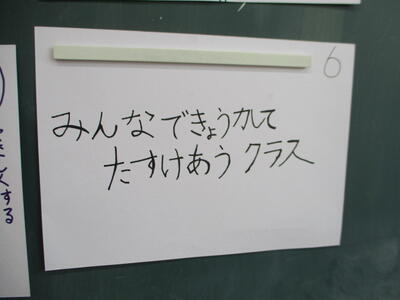 6
みんなできょう力して
たすけあうクラス
する